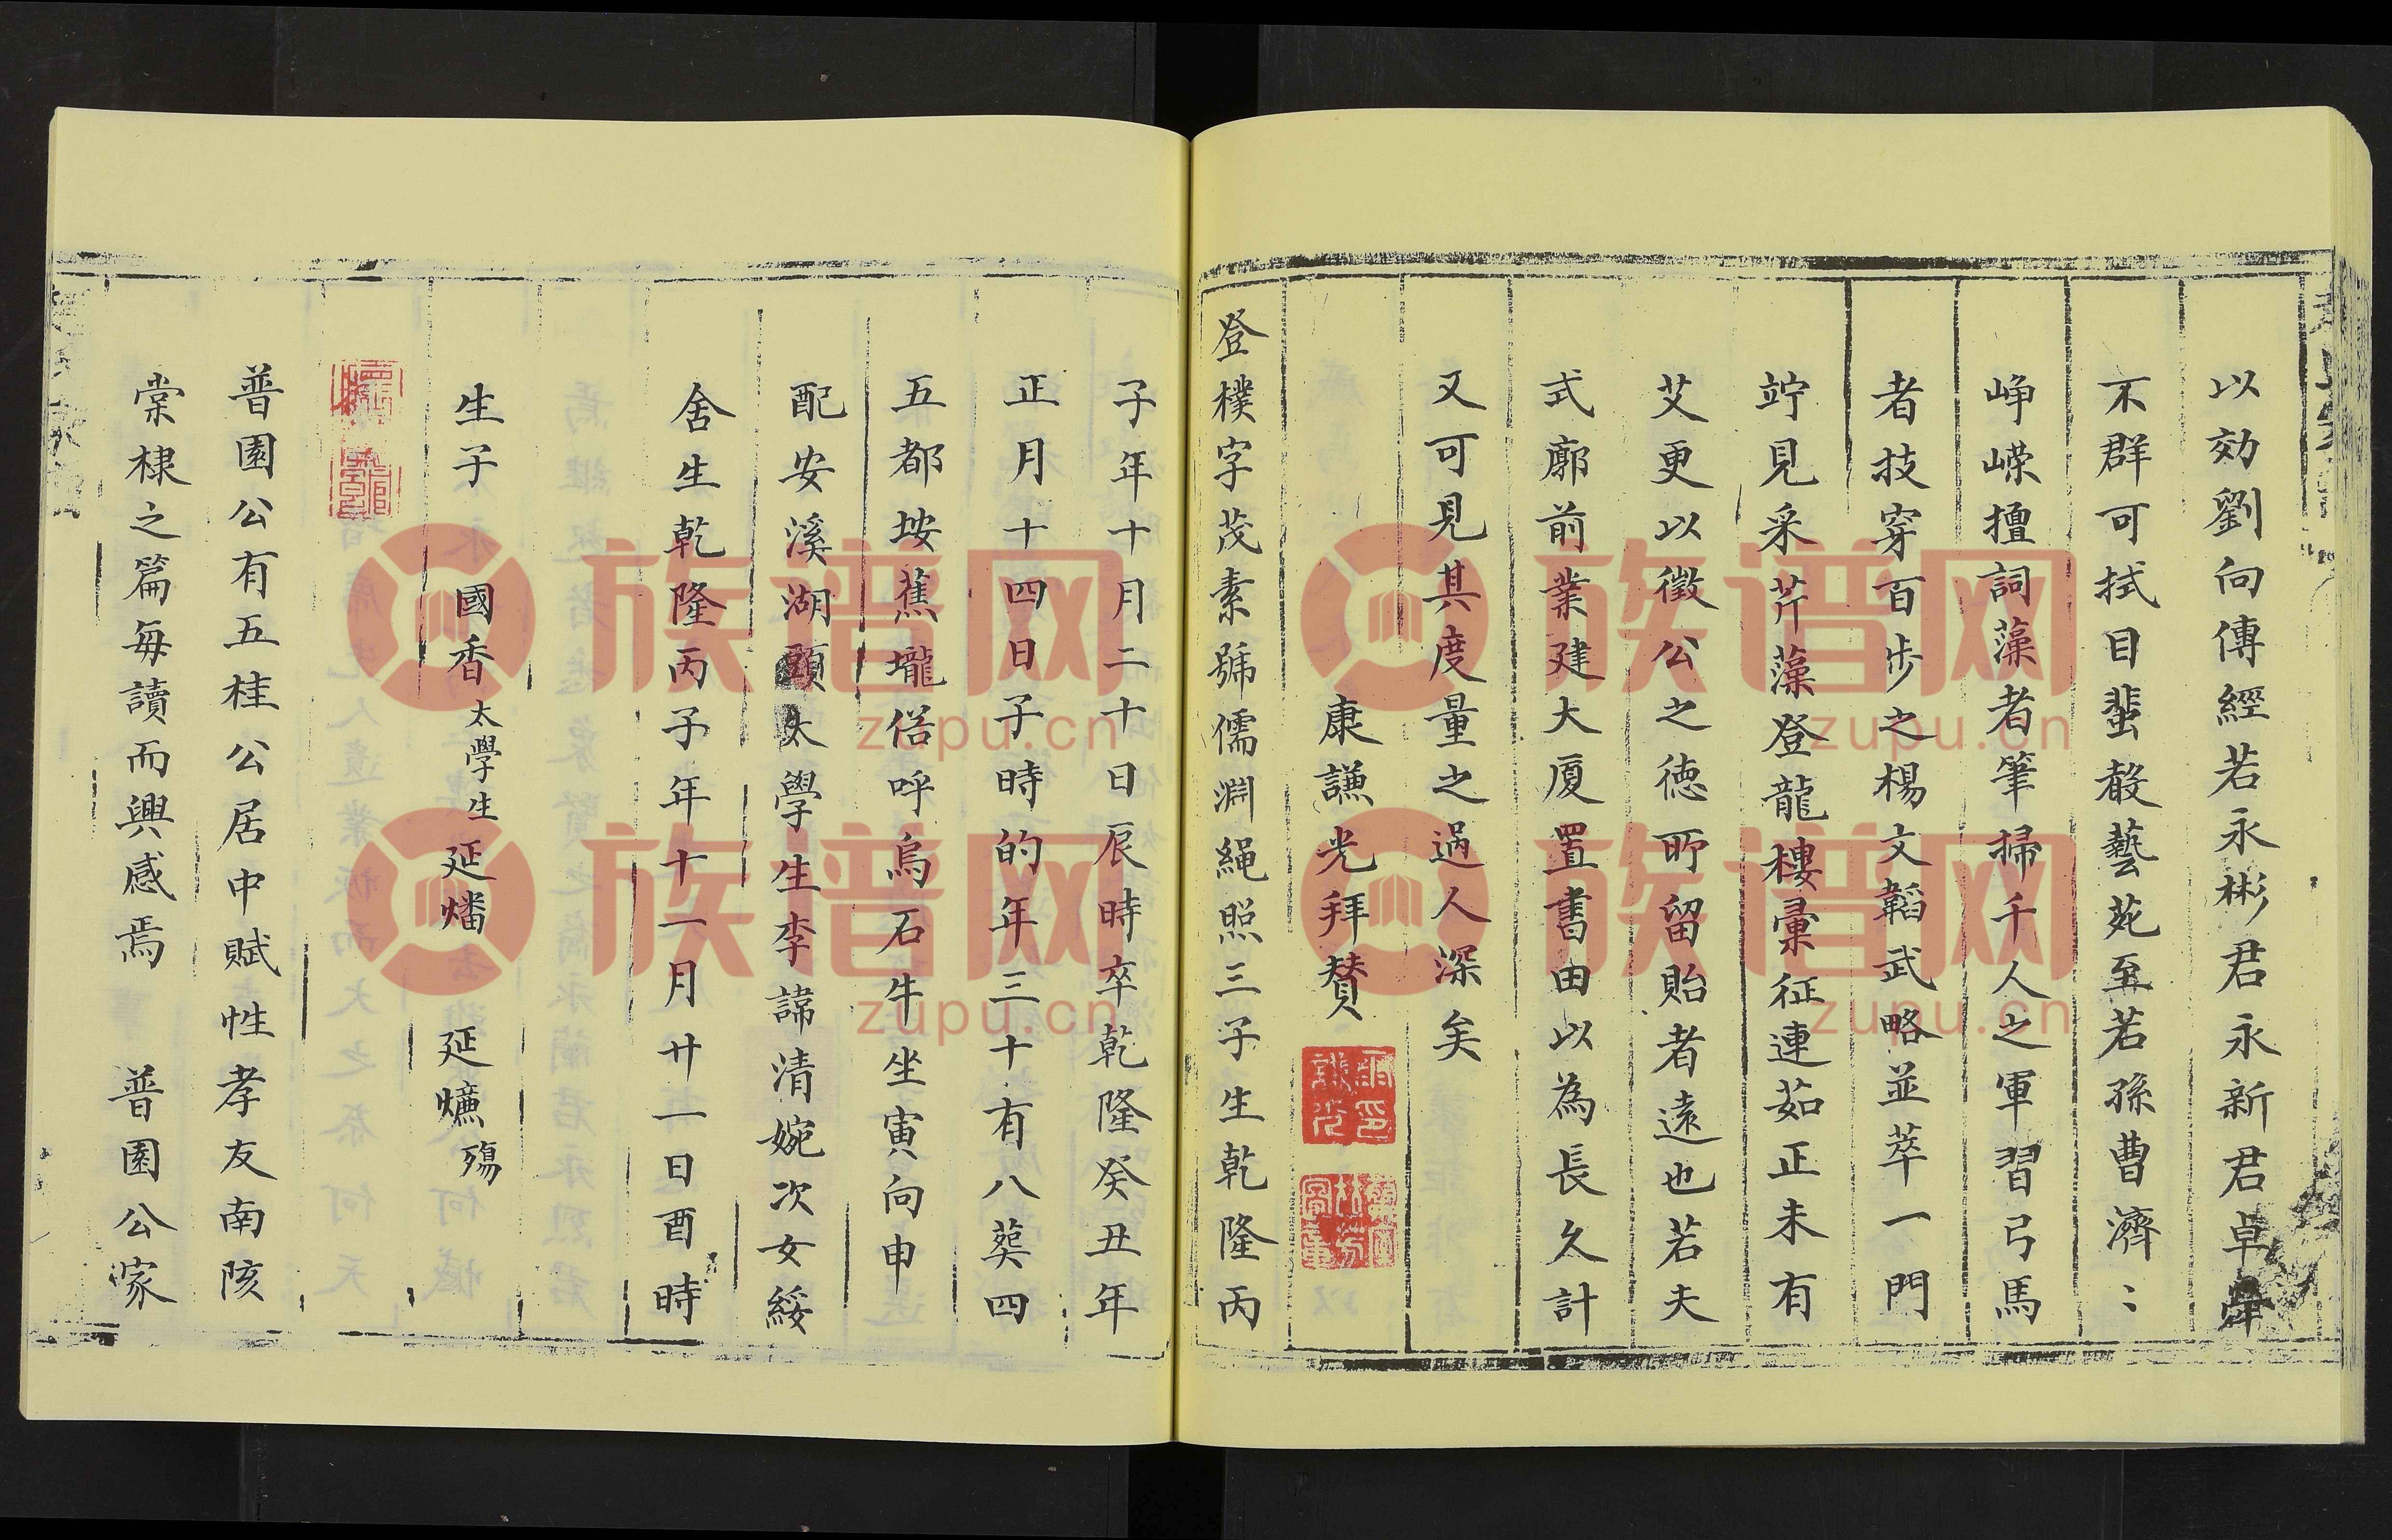 以効劉向傳經若永彬君永新君卓犖
不群可拭目蜚嗀藝苑至若孫曹濟〻
崢嶸擅詞藻者筆掃千人之軍習弓馬
者技穿百步之楊文韜武略並萃一門
竚見采芹藻登龍樓彙征連茹正未有
艾更以徵公之德所留貽者遠也若夫
式廓前業建大厦置書田以為長久計
又可見其度量之過人深矣
康謙光拜贊
登樸字茂素號儒淵繩照三子生乾隆丙
子年十月二十日辰時卒乾隆癸丑年
正月十四日子時的年三十有八葬四
五都垵蕉壠俗呼烏石牛坐寅向申
配安溪湖頭太學生李諱清婉次女綏
舍生乾隆丙子年十一月廿一日酉時
生子 國香 太學生 延燔 延爊 殤
普園公有五桂公居中賦性孝友南陔
棠棣之篇每讀而興感焉 普園公家
族谱网
zupu.cn
族谱网
zupu.cn
族谱网
zupu.cn
族谱网
zupu.cn